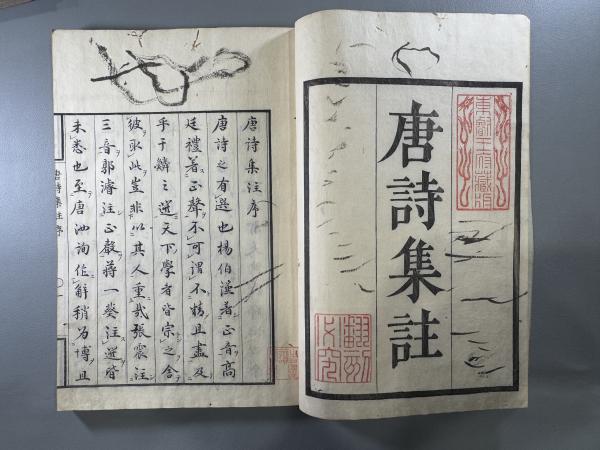 東叡王府藏版
唐詩集註
翻刻必究
唐詩集注序
唐詩之有選也楊伯謙著正音高
廷禮著正聲不可謂不精且盡及
乎于鱗之選天下學者皆宗之舍
彼取此豈非以其人重哉張震注
三音郭濬注正聲蔣一葵注選皆
未悉也至唐汝詢作解稍為博且
唐詩集注序